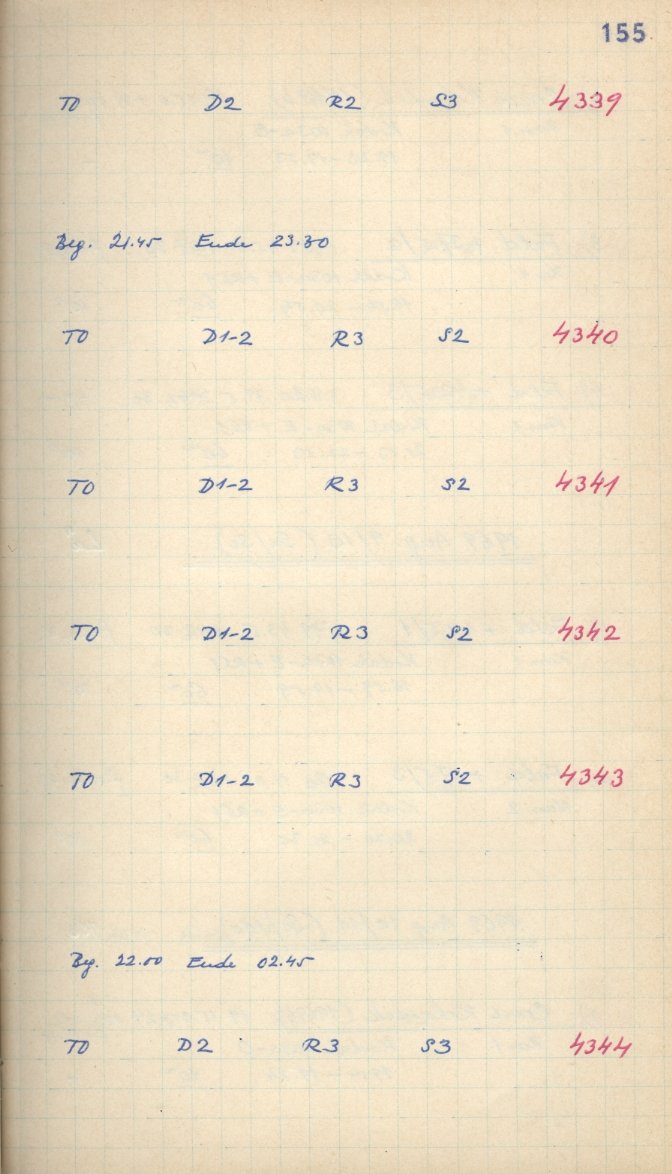 155
TO D2 R2 S3 4339
Beg. 21.45 Ende 23.30
TO D1-2 R3 S2 4340
TO D1-2 R3 S2 4341
TO D1-2 R3 S2 4342
TO D1-2 R3 S2 4343
Bg. 22.00 Ende 02.45
TO D2 R3 S3 4344